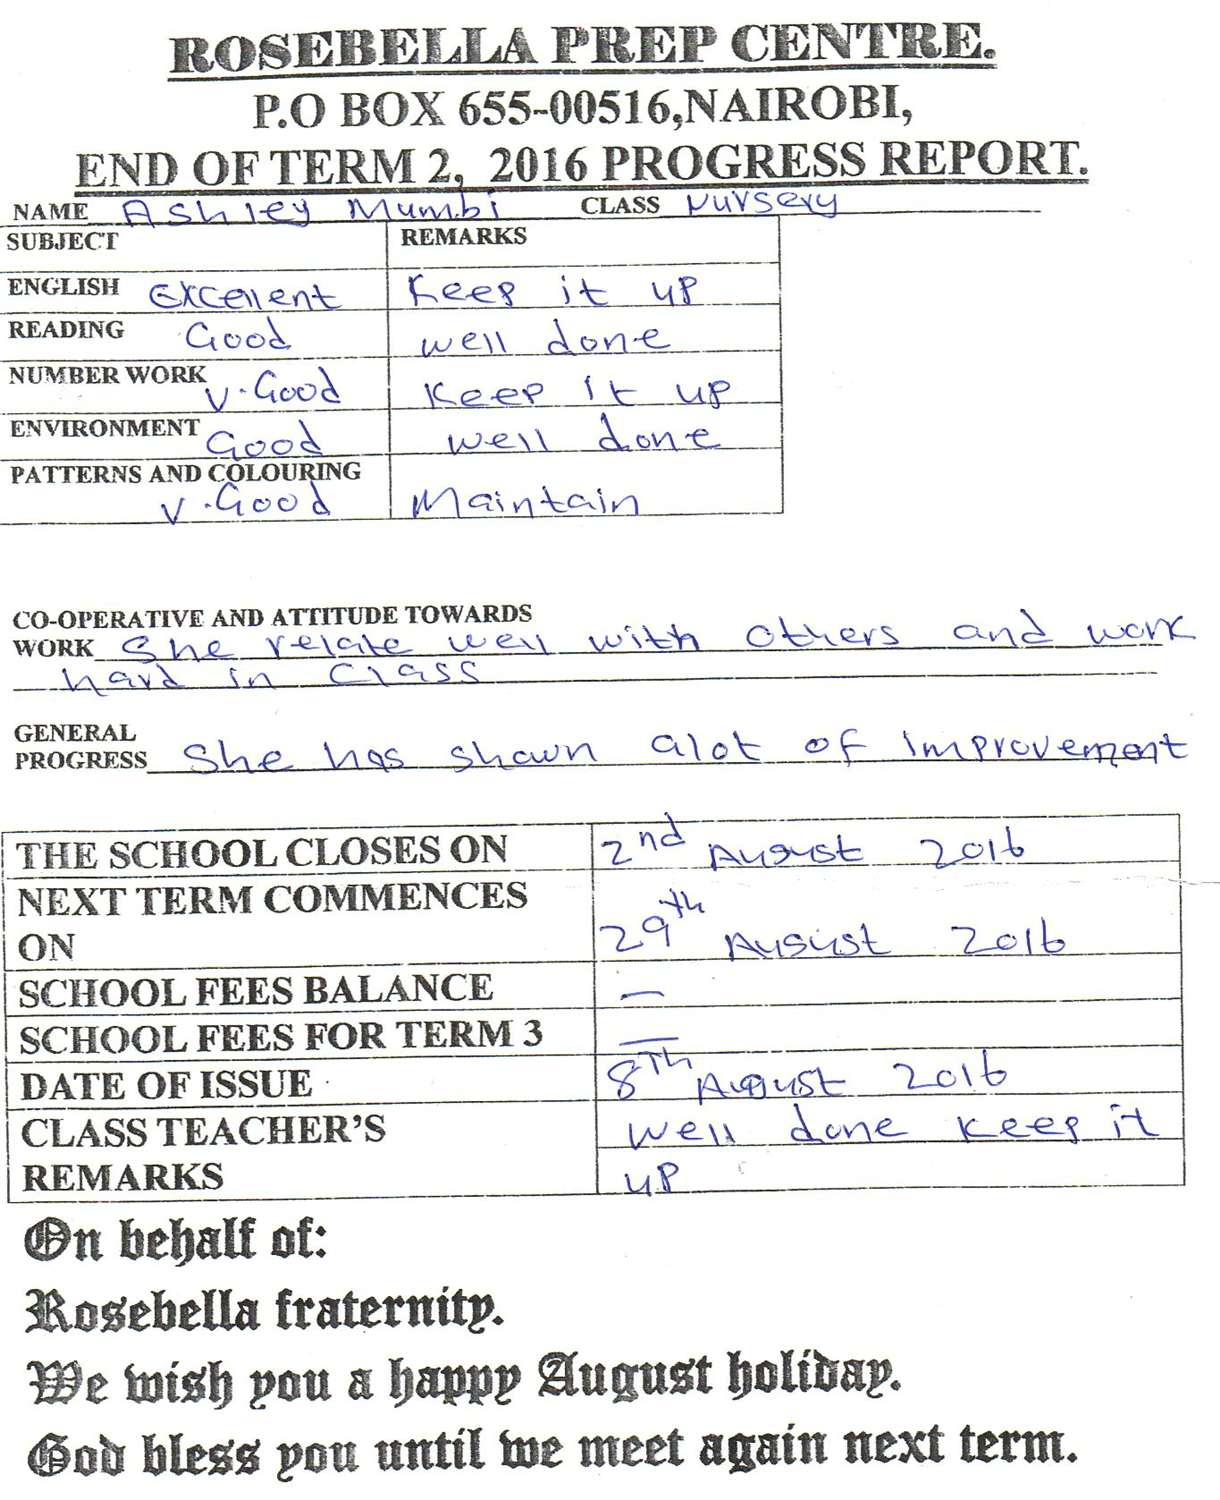 ROSEBELLA PREP CENTRE.
P.O BOX 655-00516,NAIROBI,
END OF TERM 2, 2016 PROGRESS REPORT.
NAME Ashley Mumbi CLASS Nursery
SUBJECT REMARKS
ENGLISH Excellent Keep it up
READING Good well done
NUMBER WORK V.Good Keep it up
ENVIRONMENT Good well done
PATTERNS AND COLOURING
V.Good Maintain
CO-OPERATIVE AND ATTITUDE TOWARDS
WORK She relate well with others and work
hard in class
GENERAL
PROGRESS She has shown alot of improvement
THE SCHOOL CLOSES ON 2nd August 2016
NEXT TERM COMMENCES
ON 29th August 2016
SCHOOL FEES BALANCE —
SCHOOL FEES FOR TERM 3 —
DATE OF ISSUE 8Th August 2016
CLASS TEACHER'S well done keep it
REMARKS up
On behalf of:
Rosebella fraternity.
We wish you a happy August holiday.
God bless you until we meet again next term.